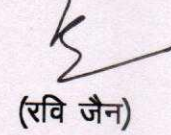 (रवि जैन)